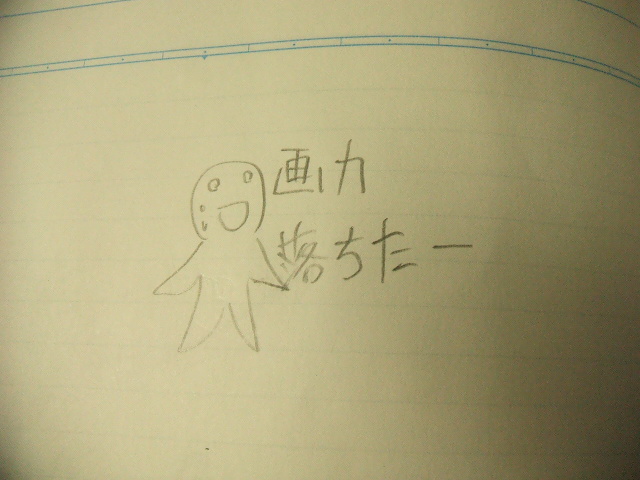 画力
落ちたー